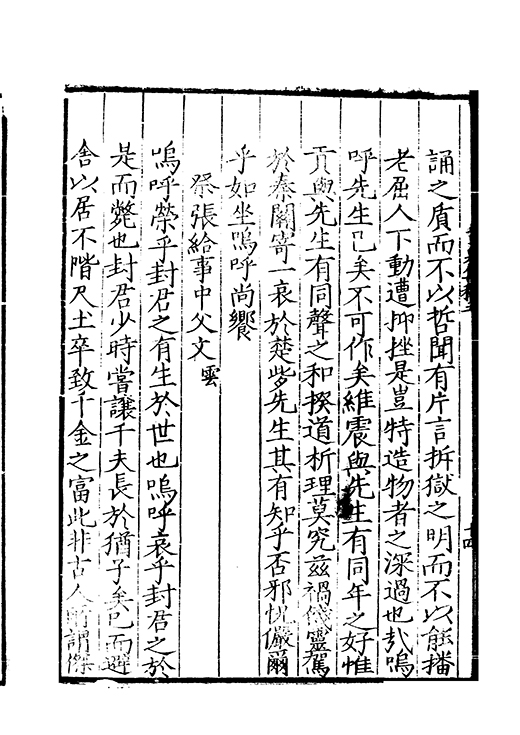 誦之盾而不以哲聞有片言折獄之明而不以能播
老屈人下動遭抑挫是豈特造物者之深過也㢤嗚
呼先生已矣不可作矣維震與先生有同年之好惟
貢與先生有同聲之和揆道析理莫究茲禍俊靈駕
於秦關寄一哀於楚些先生其有知乎否邪恍儼爾
乎如坐嗚呼尚饗
祭張給事中父文雲
嗚呼榮乎封君之有生於世也嗚呼哀乎封君之於
是而斃也封君少時嘗讓千夫長於猶子矣已而避
舍以居不階尺土卒致千金之富此非古人所謂傑